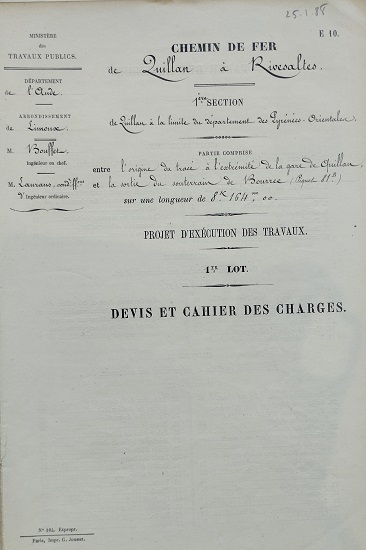 25.1.88
E 10.
MINISTÈRE
des
TRAVAUX PUBLICS.
DÉPARTEMENT
de l'Aude
ARRONDISSEMENT
de Limoux.
M. Bouffet,
Ingénieur en chef.
M. Laurans, cond.
d'Ingénieur ordinaire.
CHEMIN DE FER
de Quillan à Rivesaltes.
1ère SECTION
de Quillan à la limite du département des Pyrénées-Orientales.
PARTIE COMPRISE
entre l'origine du tracé à l'extrémité de la gare de Quillan,
et la sortie du souterrain de Bourrec (Piquet 81
sur une longueur de 8k 164m 00
PROJET D'EXÉCUTION DES TRAVAUX.
1er LOT.
DEVIS ET CAHIER DES CHARGES.
Paris, Impr. G. Jousset.